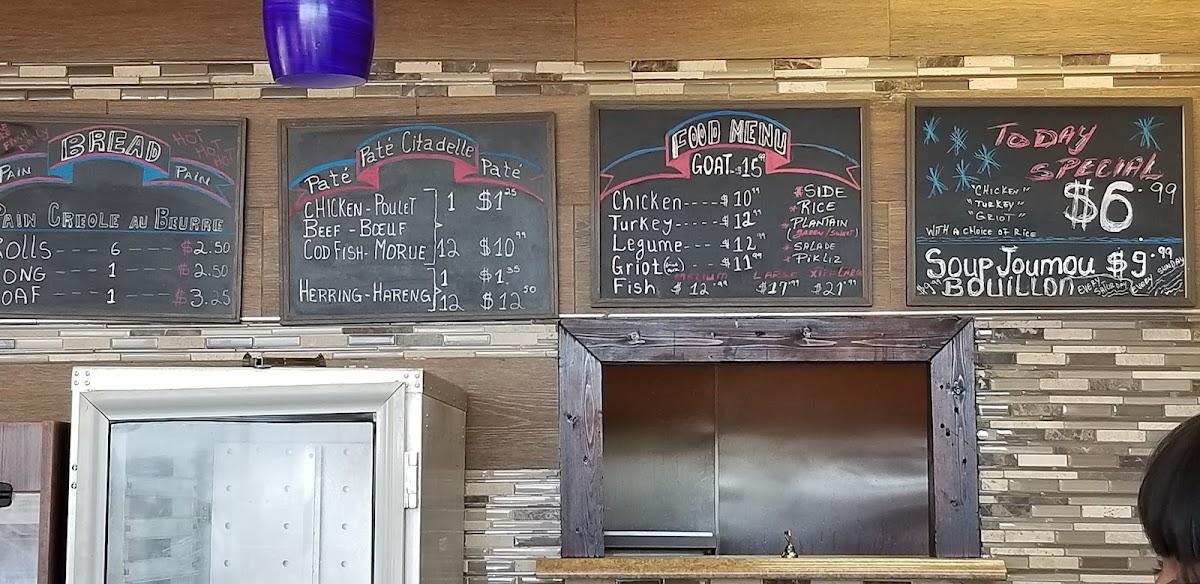 BREAD
PAIN
PAIN
HOT HOT HOT
PAIN CREOLE AU BEURRE
ROLLS ---- 6 ---- $2.50
LONG ---- 1 ---- $2.50
LOAF ---- 1 ---- $3.25
Paté Citadelle
Paté
Paté
CHICKEN-POULET
BEEF-BŒUF
CODFISH-MORUE
1 $1.25
12 $10.99
HERRING-HARENG
1 $1.35
12 $12.50
FOOD MENU
GOAT-$15.99
Chicken---- $10.99
Turkey---- $12.99
Legume---- $12.99
Griot $11.99
*SIDE
*RICE
*PLANTAIN
(GREEN/SWEET)
*SALADE
*PIKLIZ
MEDIUM LARGE XTRA LARGE
Fish $12.99 $17.99 $21.99
TODAY
SPECIAL
"CHICKEN"
"TURKEY"
"GRIOT"
$6.99
WITH A CHOICE OF RICE
SOUP JOUMOU $9.99
BOUILLON EVERY SATURDAY EVERY SUNDAY